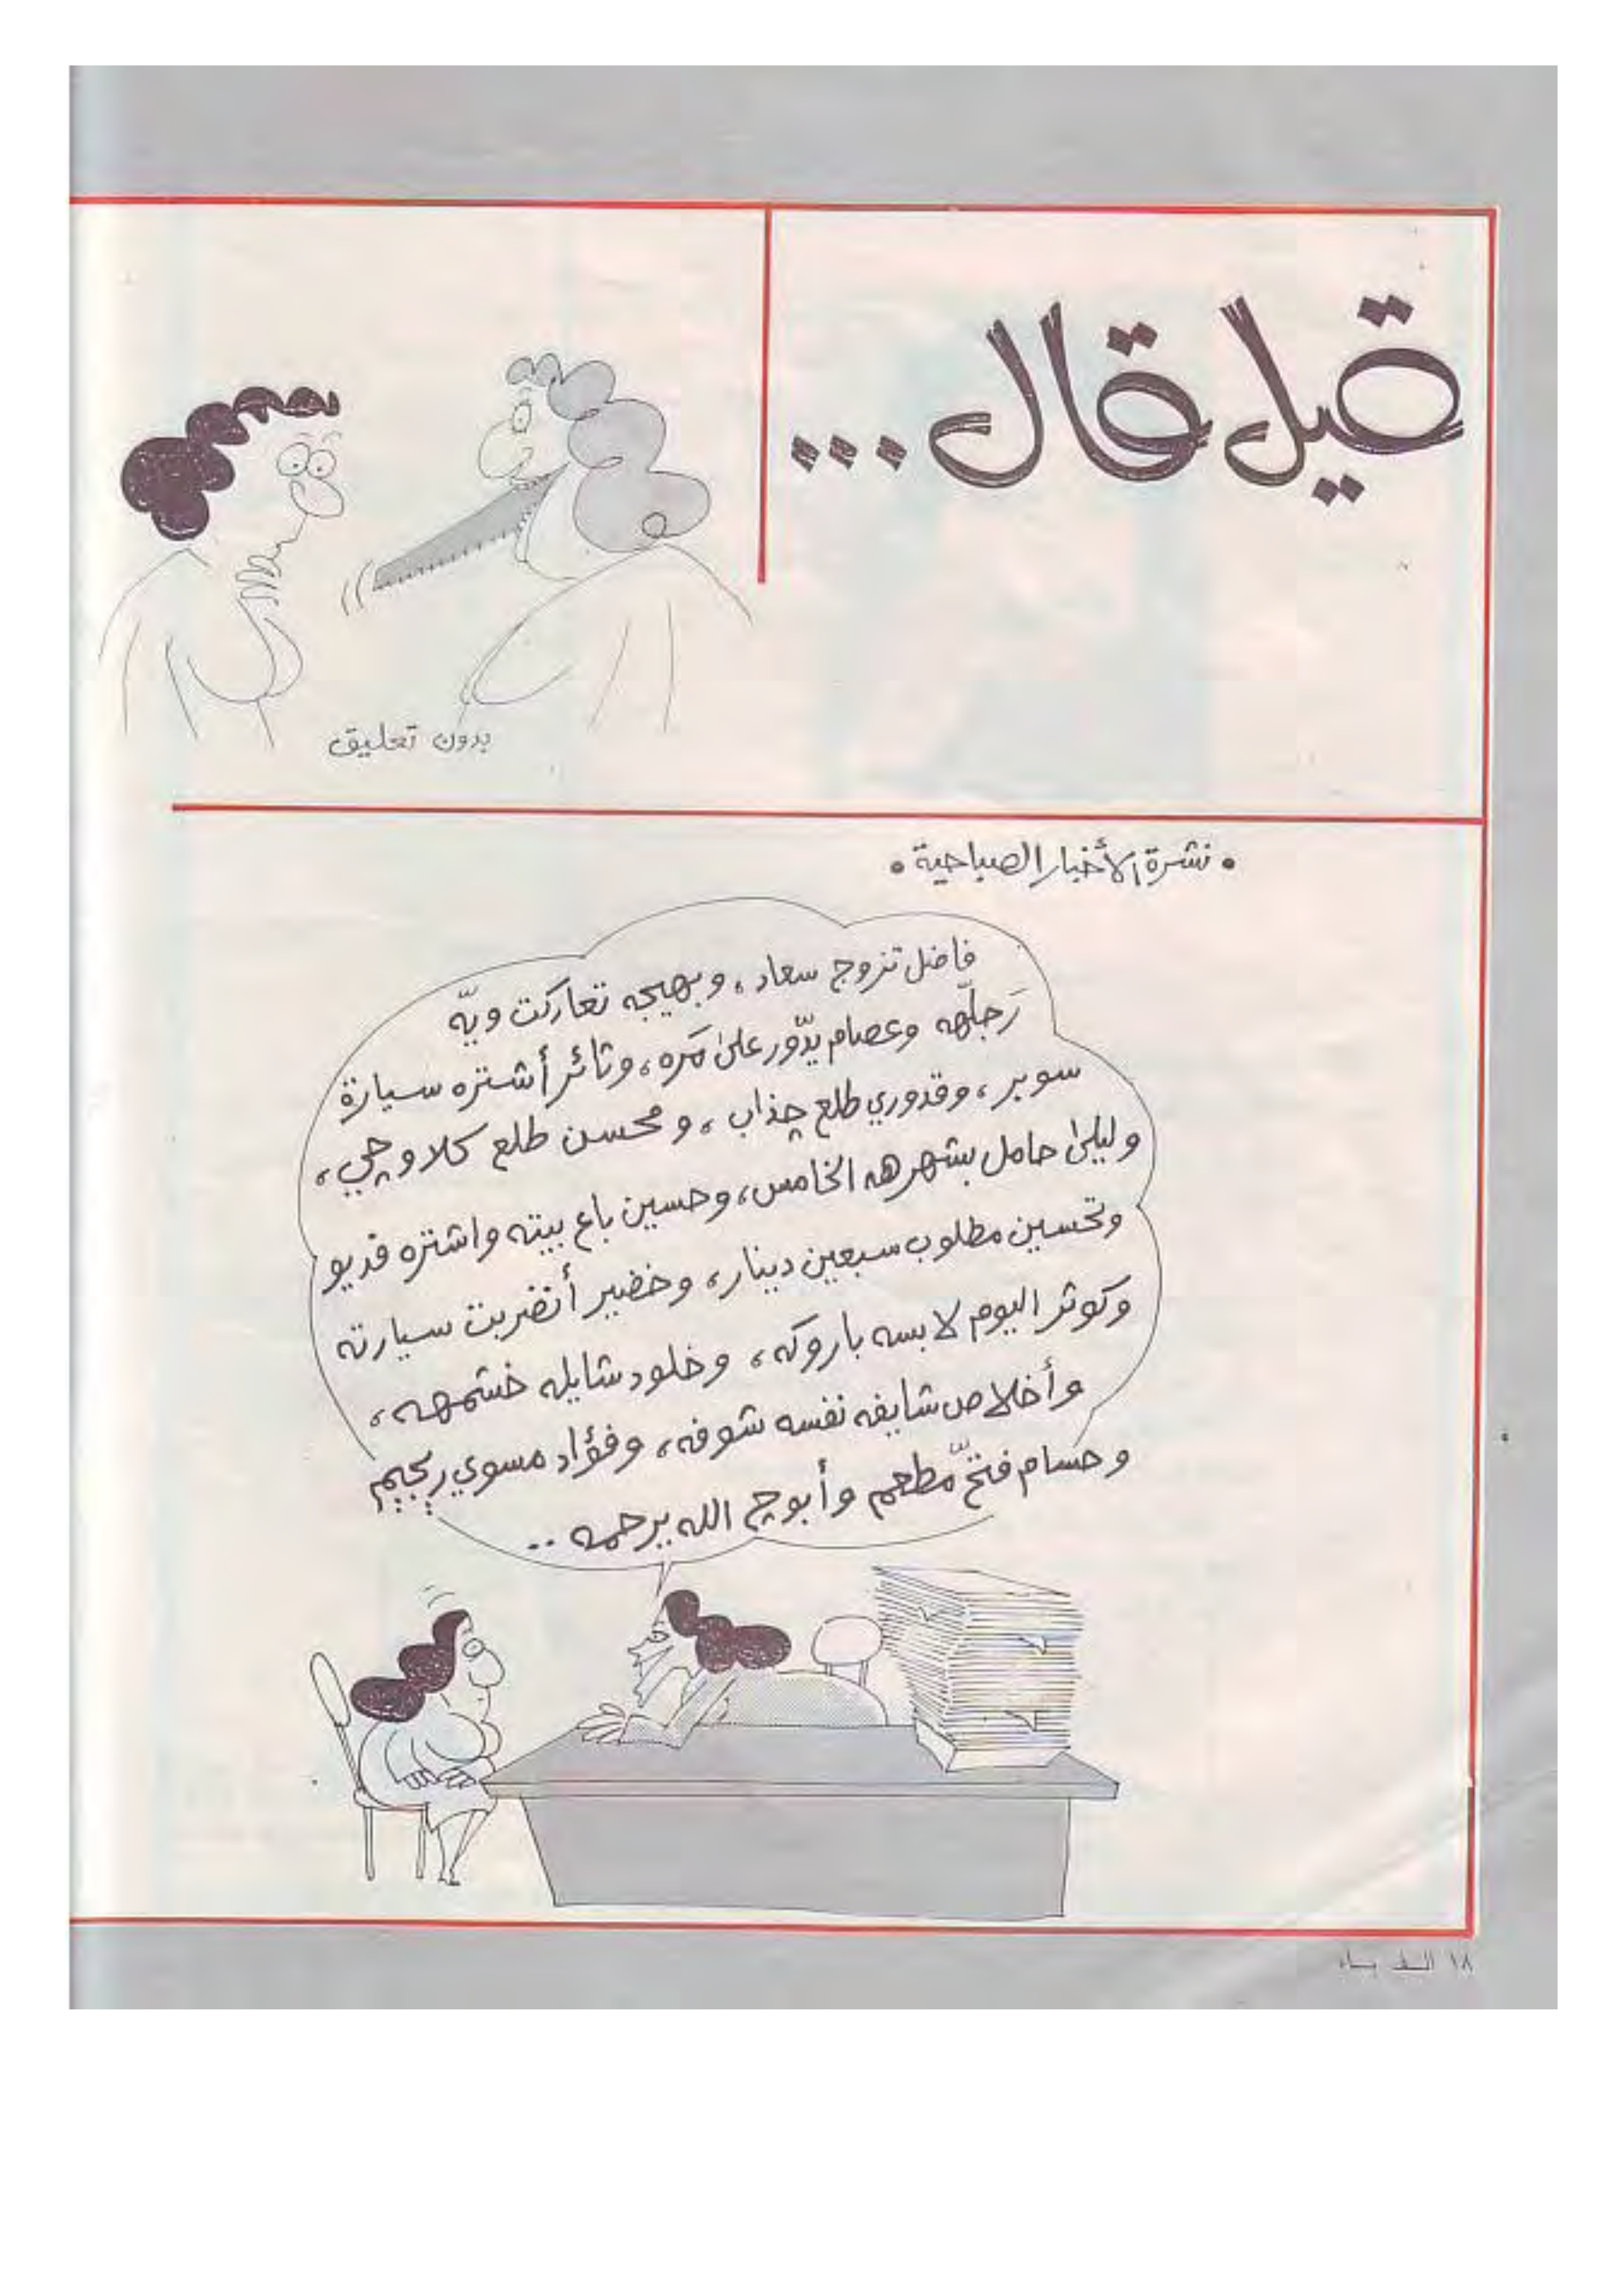 قيل قال ...
بدون تعليق
• نشرة الأخبار الصباحية •
فاضل تزوج سعاد، وبهيجه تعاركت ويّه
رَجلّهه وعصام يدّور علىٰ مَره، وثائر أشتره سيارة
سوبر، وقدوري طلع چذاب، ومحسن طلع كلاوچي،
وليلىٰ حامل بشهرهه الخامس، وحسين باع بيته واشتره فديو
وتحسين مطلوب سبعين دينار، وخضير أنضربت سيارته
وكوثر اليوم لابسه باروكه، وخلود شايله خشمهه،
وأخلاص شايفه نفسه شوفه، وفؤاد مسوي ريجيم
وحسام فتح مطعم وأبوج الله يرحمه ..
١٨ الف باء